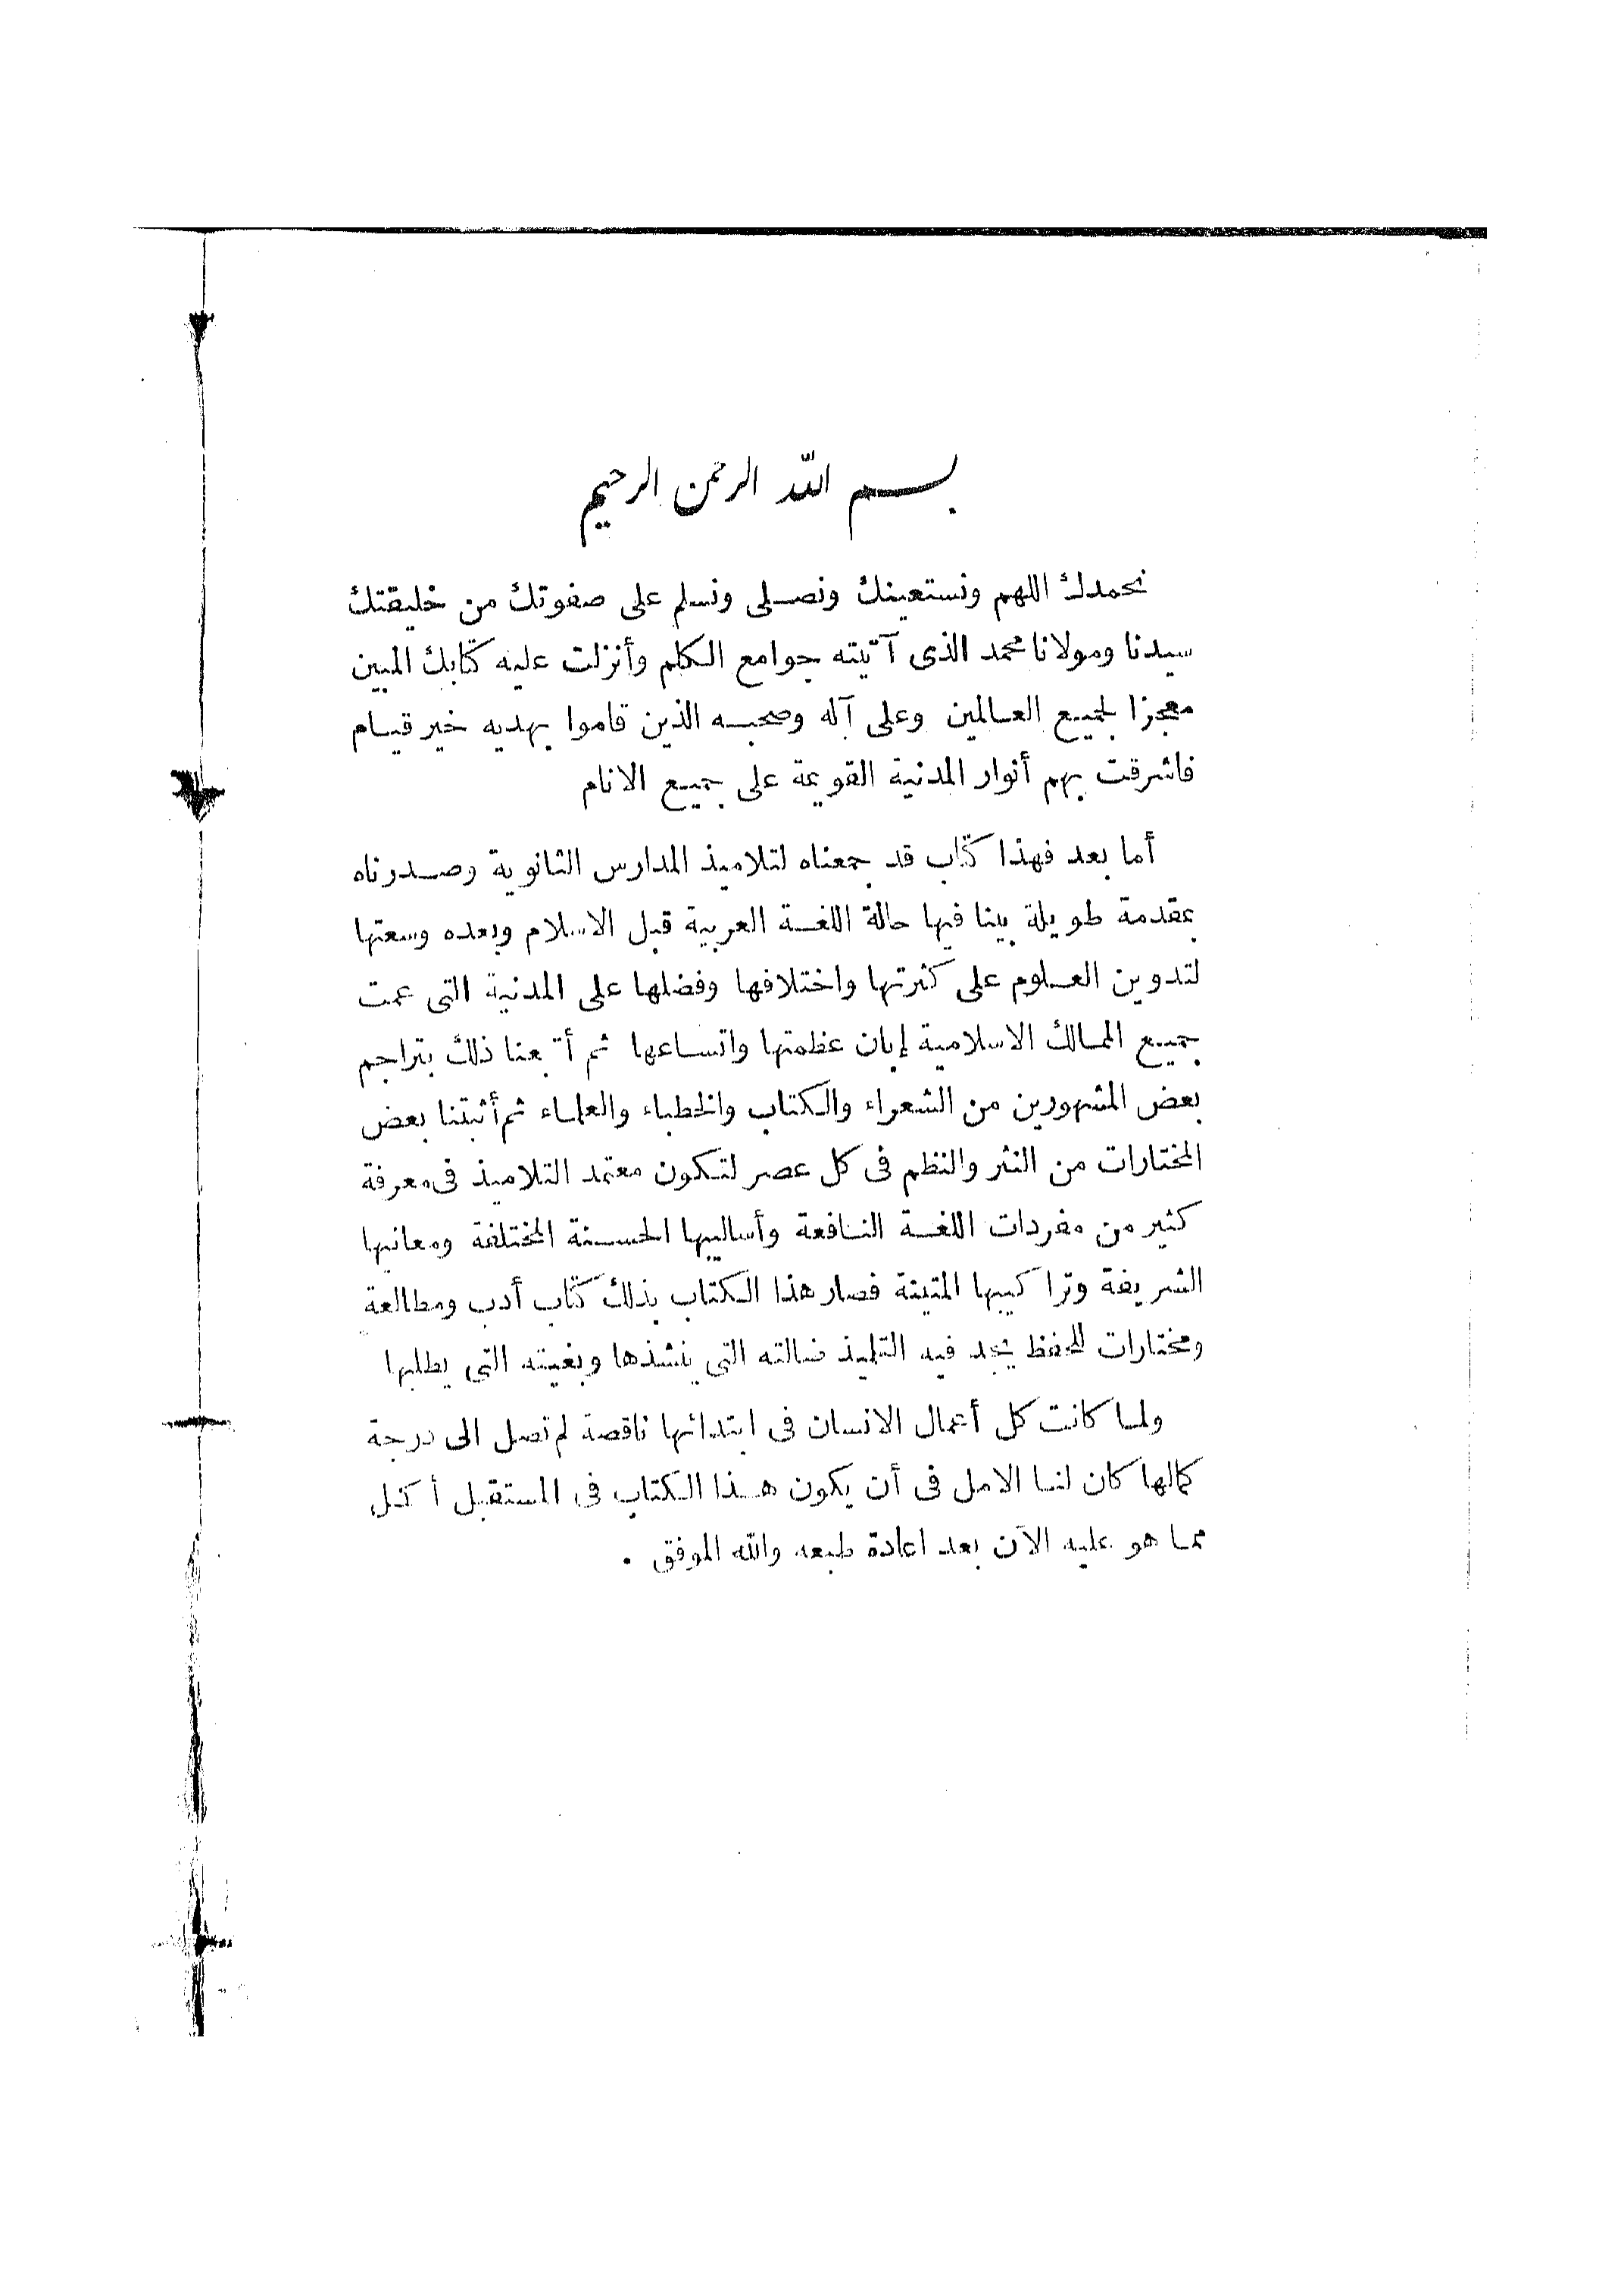 بسم الله الرحمن الرحيم
نحمدك اللهم ونستعينك ونصلى ونسلم على صفوتك من خليقتك
سيدنا ومولانا محمد الذى آتيته جوامع الكلم وأنزلت عليه كتابك المبين
معجزا لجميع العالمين وعلى آله وصحبه الذين قاموا بهديه خير قيام
فاشرقت بهم أنوار المدنية القويمة على جميع الانام
أما بعد فهذا كتاب قد جمعناه لتلاميذ المدارس الثانوية وصدرناه
بمقدمة طويلة بينا فيها حالة اللغة العربية قبل الاسلام وبعده وسعتها
لتدوين العلوم على كثرتها واختلافها وفضلها على المدنية التى عمت
جميع الممالك الاسلامية إبان عظمتها واتساعها ثم أتبعنا ذلك بتراجم
بعض المشهورين من الشعراء والكتاب والخطباء والعلماء ثم أثبتنا بعض
المختارات من النثر والنظم فى كل عصر لتكون معتمد التلاميذ فى معرفة
كثير من مفردات اللغة النافعة وأساليبها الحسنة المختلفة ومعانيها
الشريفة وتراكيبها المتينة فصار هذا الكتاب بذلك كتاب أدب ومطالعة
ومختارات للحفظ يجد فيه التلميذ ضالته التى ينشذها وبغيته التى يطلبها
ولما كانت كل أعمال الانسان فى ابتدائها ناقصة لم تصل الى درجة
كمالها كان لنا الامل فى أن يكون هذا الكتاب فى المستقبل أكمل
مما هو عليه الآن بعد اعادة طبعه والله الموفق .